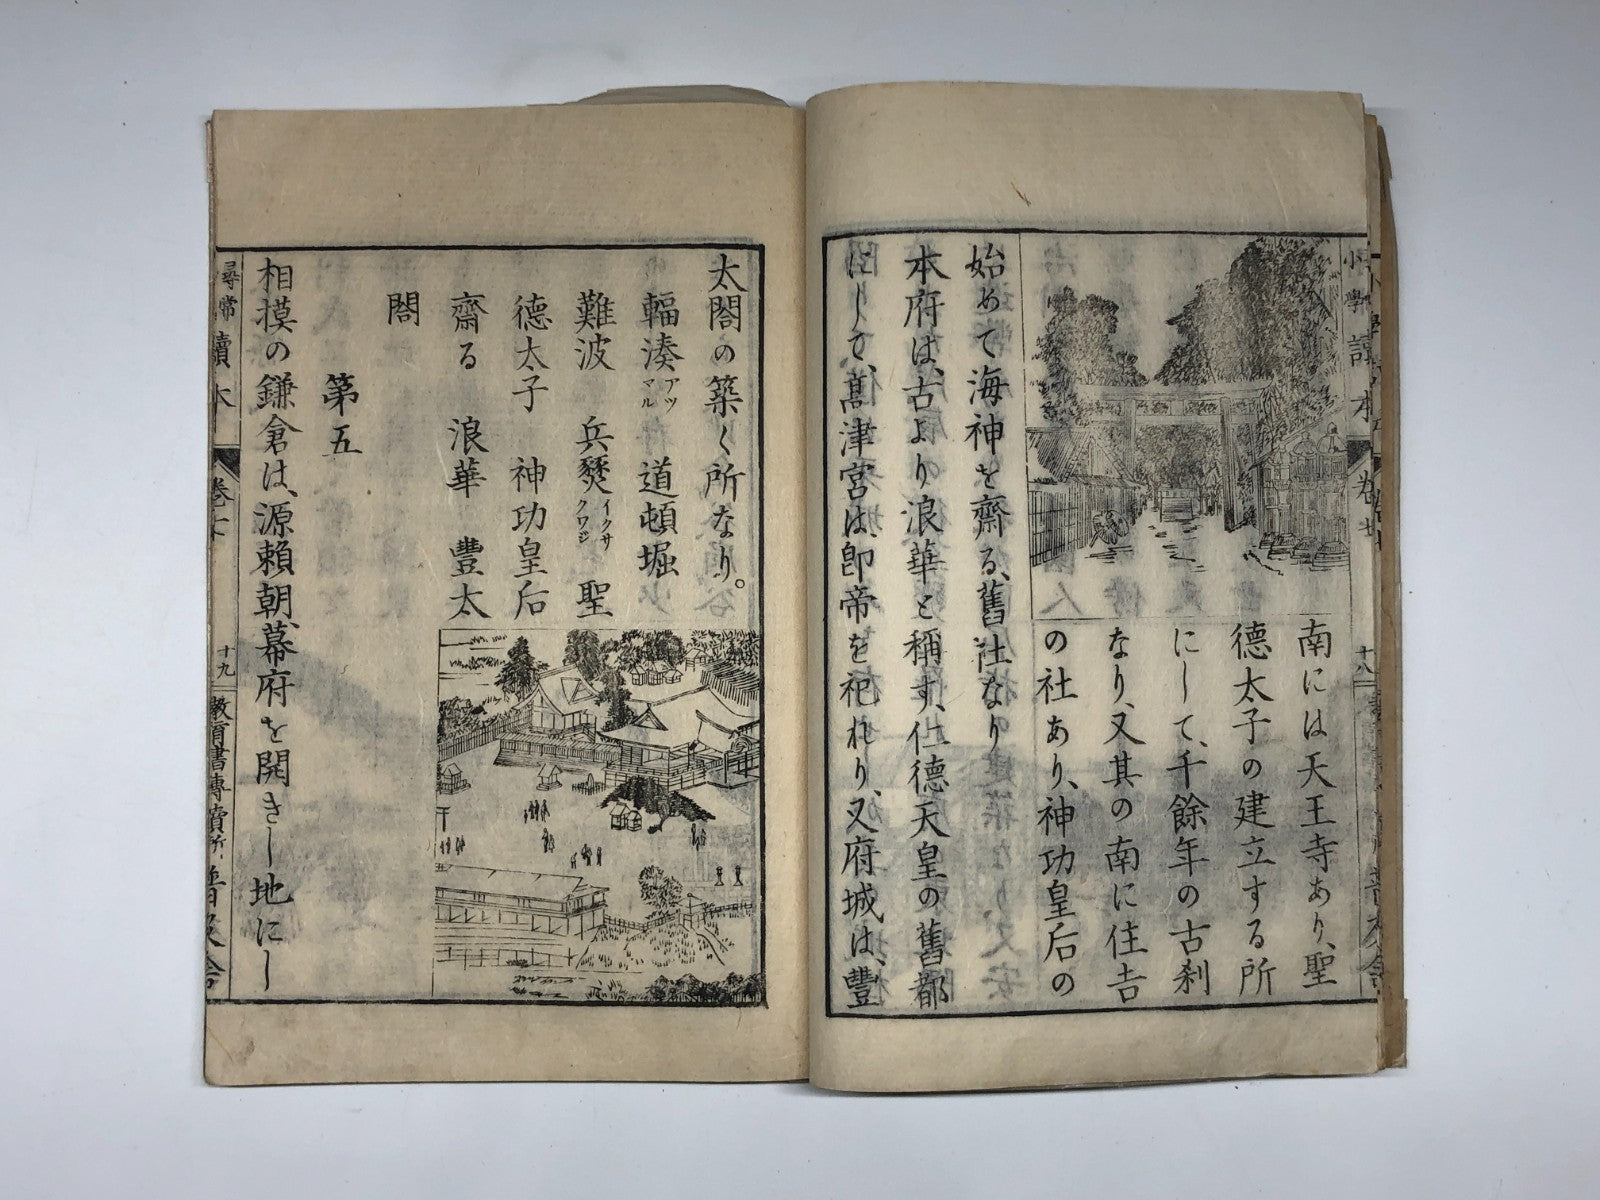 小學讀本
卷七
十八
南には天王寺あり、聖
德太子の建立する所
にして、千餘年の古刹
なり、又其の南に住吉
の社あり、神功皇后の
始めて海神を齋る、舊社なり
本府は、古より浪華と稱す、仁德天皇の舊都
にして、髙津宮は、卽帝を祀れり、又府城は、豐
太閤の築く所なり。
輻湊アツマル 道頓堀
難波 兵燹イクサクワジ 聖
德太子 神功皇后
齋る 浪華 豐太
閤
第五
相模の鎌倉は、源賴朝、幕府を開きし地にし
尋常
讀本
卷七
十九
教育書專賣所
普及舍